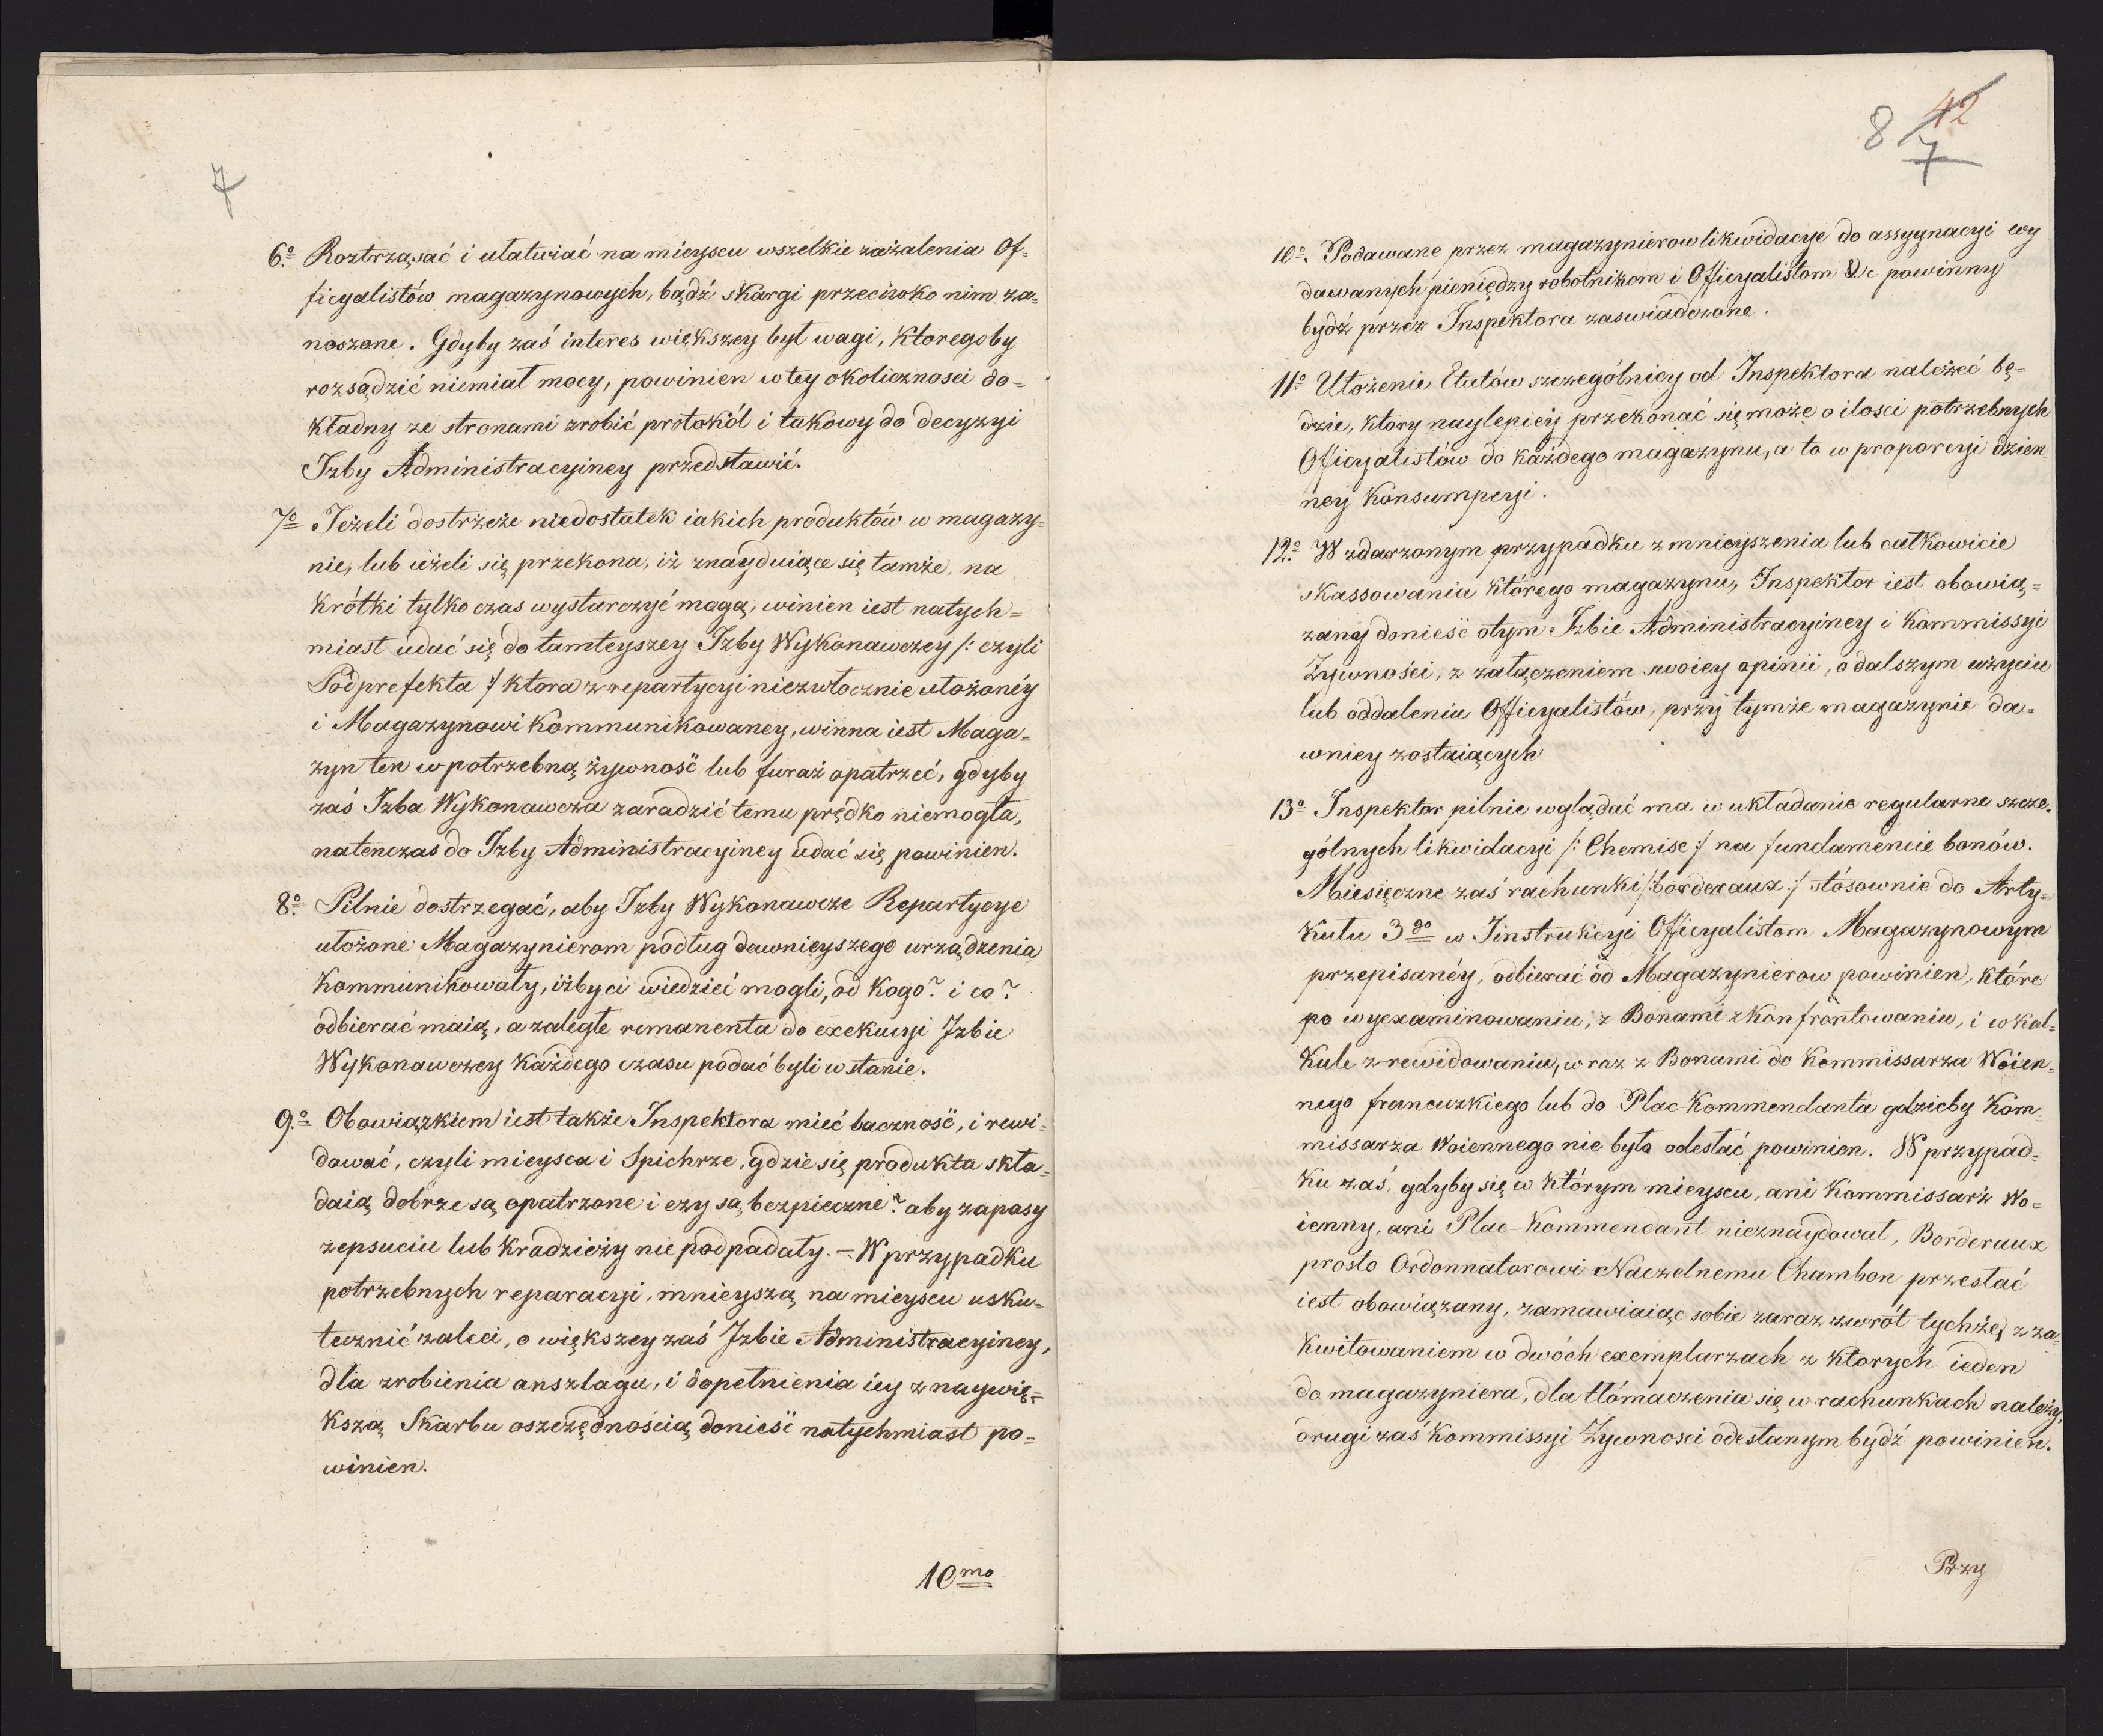 7
6º Roztrząsać i ułatwiać na mieyscu wszelkie zażalenia Of=
ficyalistów magazynowych, bądź skargi przeciwko nim za=
noszone. Gdyby zaś interes większey był wagi, ktoregoby
rozsądzić niemiał mocy, powinien w tey okolicznosci do=
kładny ze stronami zrobić protokól i takowy do decyzyi
Izby Administracyiney przedstawić.
7º Jeżeli dostrzeże niedostatek iakich produktów w magazy=
nie, lub ieżeli się przekona, iż znayduiące się tamże, na
krótki tylko czas wystarczyć mogą, winien iest natych=
miast udać się do tamteyszey Izby Wykonawczey /: czyli
Podprefekta :/ ktora z repartycyi niezwłocznie ułożonéy
i Magazynowi kommunikowaney, winna iest Maga=
zyn ten w potrzebną żywność lub furaż opatrzeć, gdyby
zaś Izba Wykonawcza zaradzić temu prędko niemogła,
natenczas do Izby Administracyiney udać się powinien.
8º Pilnie dostrzegać, aby Izby Wykonawcze Repartycye
ułożone Magazynierom podług dawnieyszego urządzenia
kommunikowały, iżby ci wiedzieć mogli, od kogo? i co?
odbierać maią, a zaległe remanenta do exekucyi Izbie
Wykonawczey każdego czasu podać byli w stanie.
9º Obowiązkiem iest także Inspektora mieć baczność, i rewi=
dować, czyli mieysca i Spichrze, gdzie się produkta skła=
daią dobrze są opatrzone i czy są bezpieczne? aby zapasy
zepsuciu lub kradzieży nie podpadały. – W przypadku
potrzebnych reparacyi, mnieyszą na mieyscu usku=
tecznić zaleci, o większey zaś Izbie Administracyiney,
dla zrobienia anszlagu, i dopełnienia iey z naywię=
kszą Skarbu oszczędnością donieść natychmiast po=
winien.
10mo
8 42
7
10º. Podawane przez magazynierow likwidacye do assygnacyi wy
dawanych pieniędzy robotnikom i Oficyalistom &c powinny
bydź przez Inspektora zaswiadczone.
11º Ułożenie Etatów szczególniey od Inspektora należeć bę=
dzie, ktory naylepiéy przekonać się może o ilosci potrzebnych
Oficyalistów do każdego magazynu, a to w proporcyi dzien
ney konsumpcyi.
12º W zdarzonym przypadku zmnieyszenia lub całkowicie
skassowania którego magazynu, Inspektor iest obowią=
zany donieść o tym Izbie Administracyiney i Kommissyi
Zywności, z załączeniem swoiey opinii, o dalszym użyciu
lub oddaleniu Officyalistów, przy tymże magazynie da=
wniey zostaiących
13º Inspektor pilnie wglądać ma w układanie regularne szcze=
gólnych likwidacyi /: Chemise :/ na fundamencie bonów.
Miesięczne zaś rachunki /: borderaux :/ stósownie do Arty=
kułu 3go w Jinstrukcyi Oficyalistom Magazynowym
przepisanéy, odbierać od Magazynierow powinien, które
po wyexaminowaniu, z Bonami zkonfrontowaniu, i w kal=
kule zrewidowaniu, wraz z Bonami do Kommissarza Woien=
nego francuzkiego lub do Plac-Kommendanta gdzieby Kom=
missarza Woiennego nie było odesłać powinien. W przypad=
ku zaś, gdyby się w którym mieyscu, ani Kommissarz Wo=
ienny, ani Plac-Kommendant nieznaydował, Borderaux
prosto Ordonnatorowi Naczelnemu Chambon przesłać
iest obowiązany, zamawiaiąc sobie zaraz zwrót tychże, z za=
kwitowaniem w dwóch exemplarzach z ktorych ieden
do magazyniera, dla tłómaczenia się w rachunkach należy,
drugi zaś Kommissyi Zywnosci odesłanym bydź powinien.
Przy